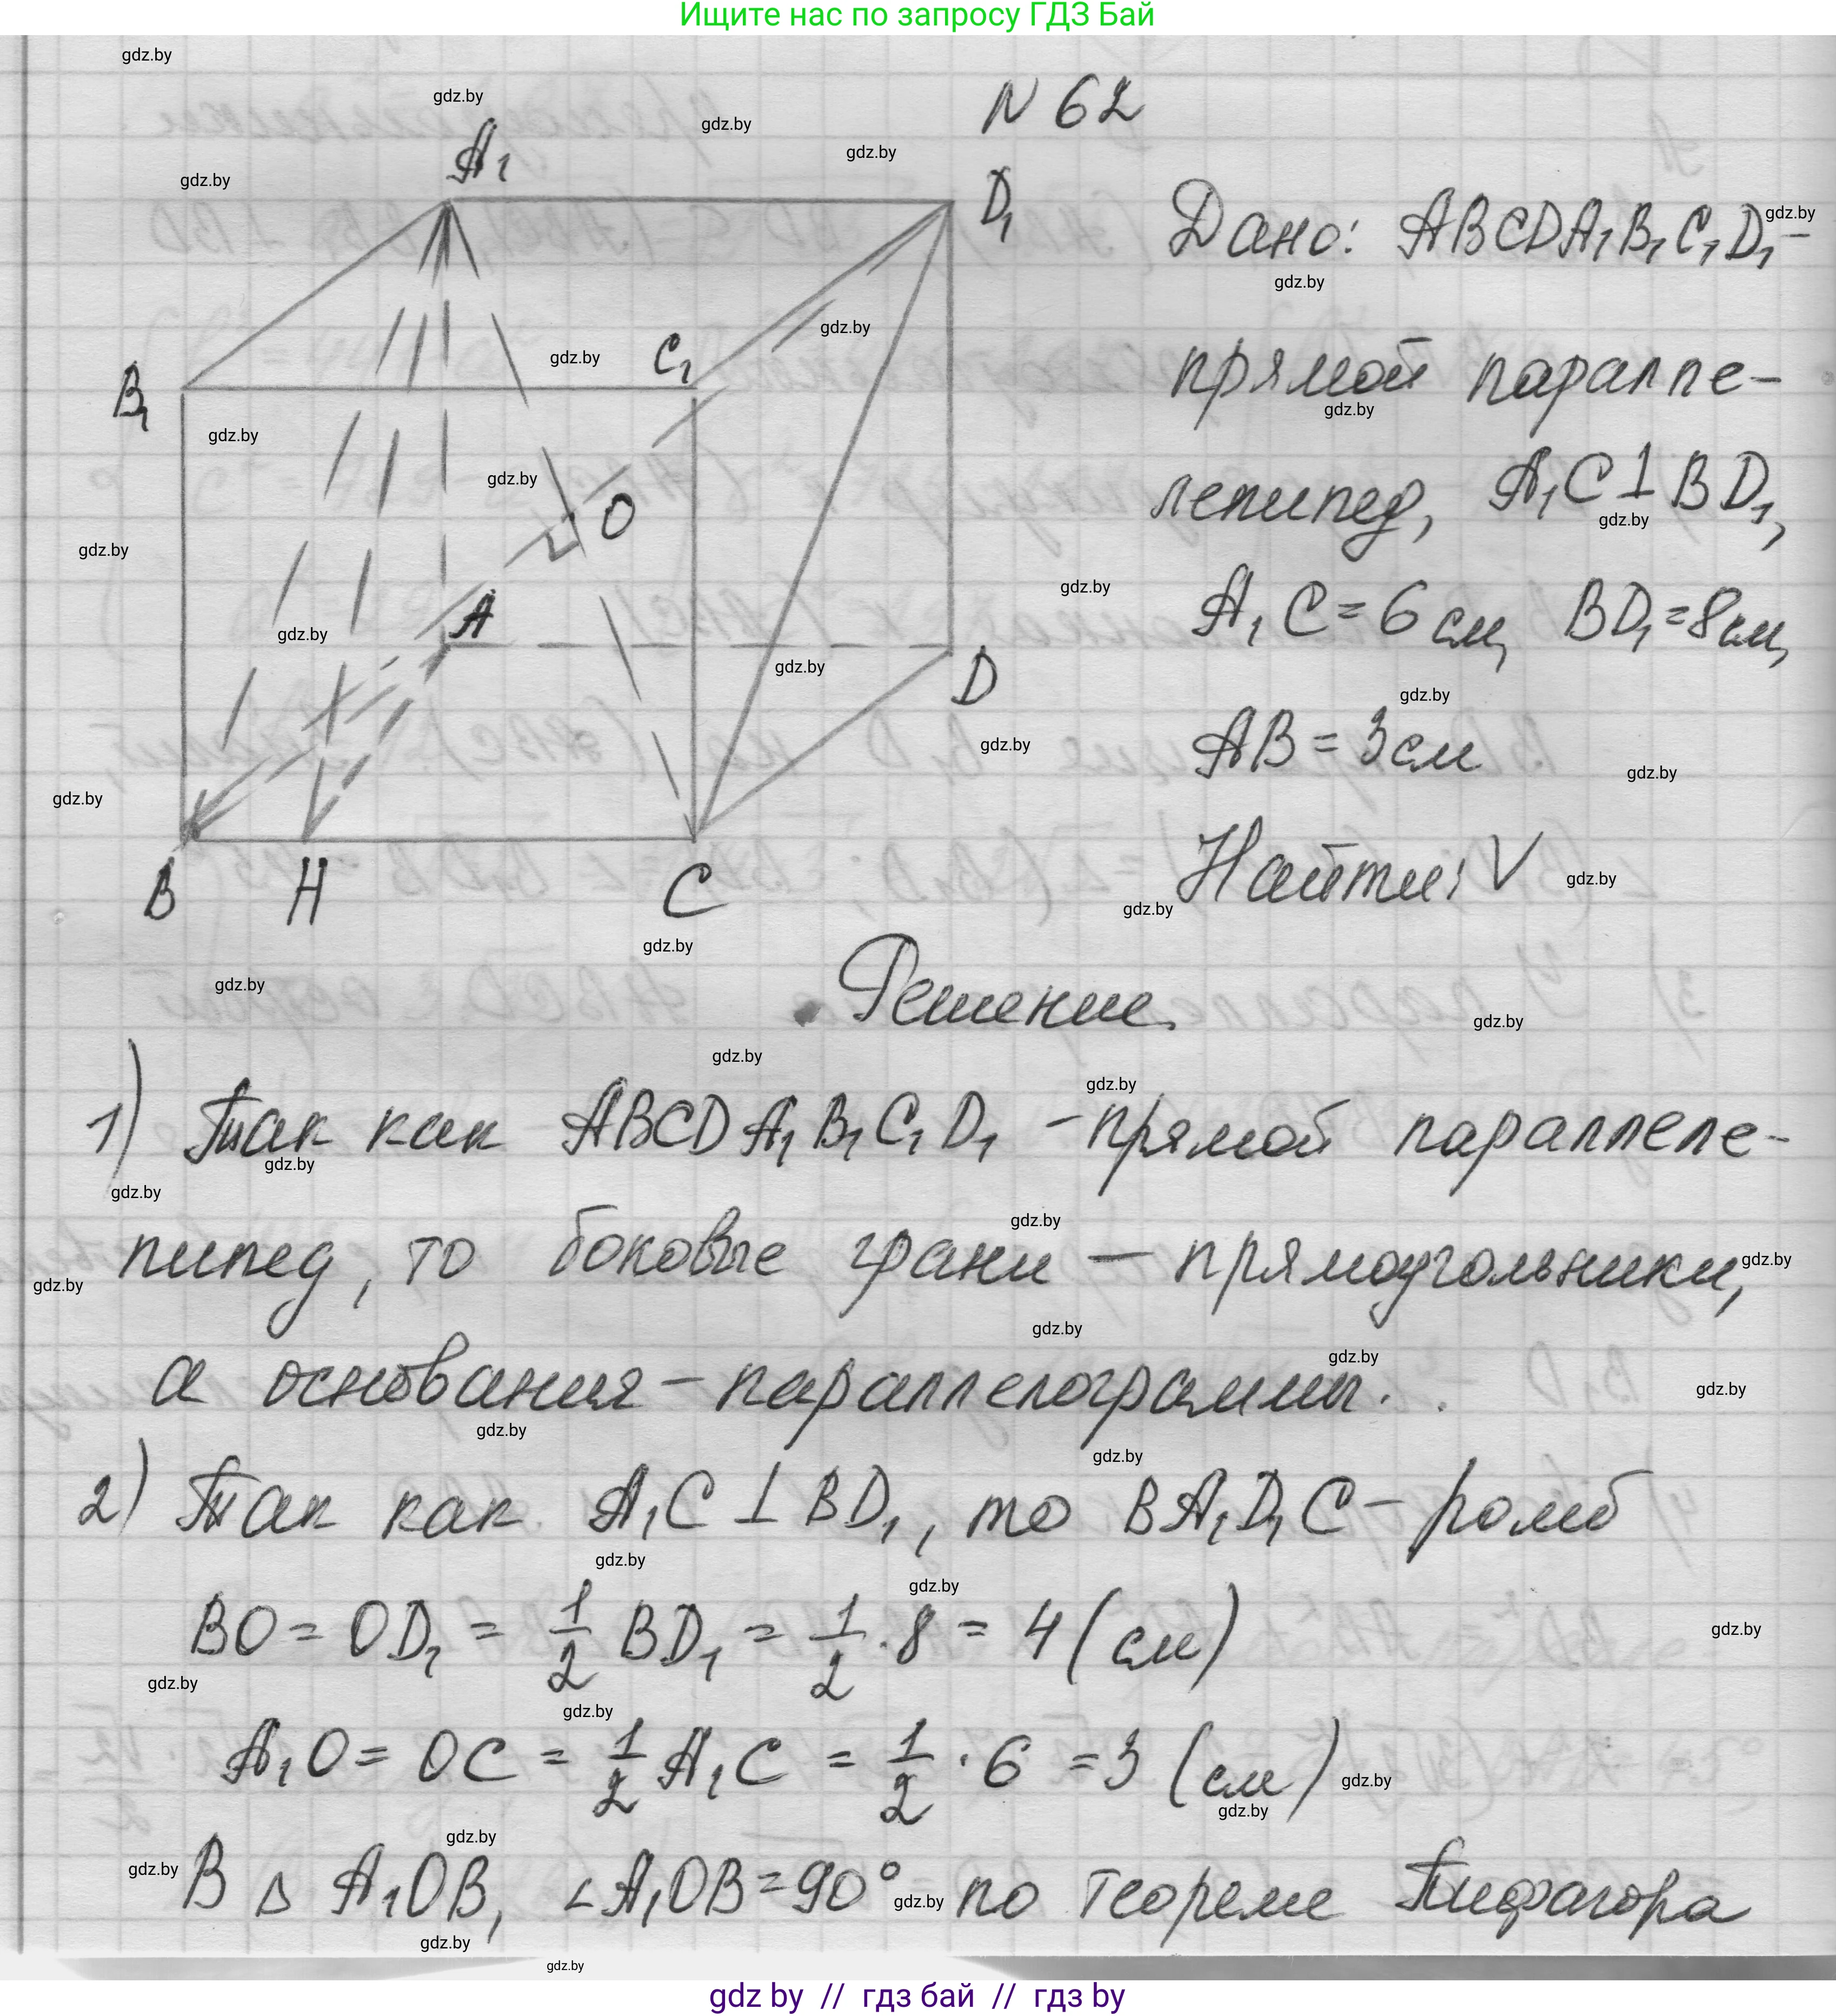 Ищите нас по запросу ГДЗ Бай
N 62
A₁
D₁
B₁
C₁
O
A
D
B
H
C
Дано: ABCDA₁B₁C₁D₁ –
прямой параллe-
лепипед, A₁C ⊥ BD₁,
A₁C = 6 см, BD₁ = 8 см,
AB = 3 см
Найти: V
Решение.
1) Так как ABCDA₁B₁C₁D₁ – прямой параллеле-
пипед, то боковые грани – прямоугольники,
а основания – параллелограммы.
2) Так как A₁C ⊥ BD₁, то BA₁D₁C – ромб
BO = OD₁ = 1/2 BD₁ = 1/2 · 8 = 4 (см)
A₁O = OC = 1/2 A₁C = 1/2 · 6 = 3 (см)
В Δ A₁OB, ∠A₁OB = 90° по теореме Пифагора
gdz.by
gdz by // гдз бай // гдз by